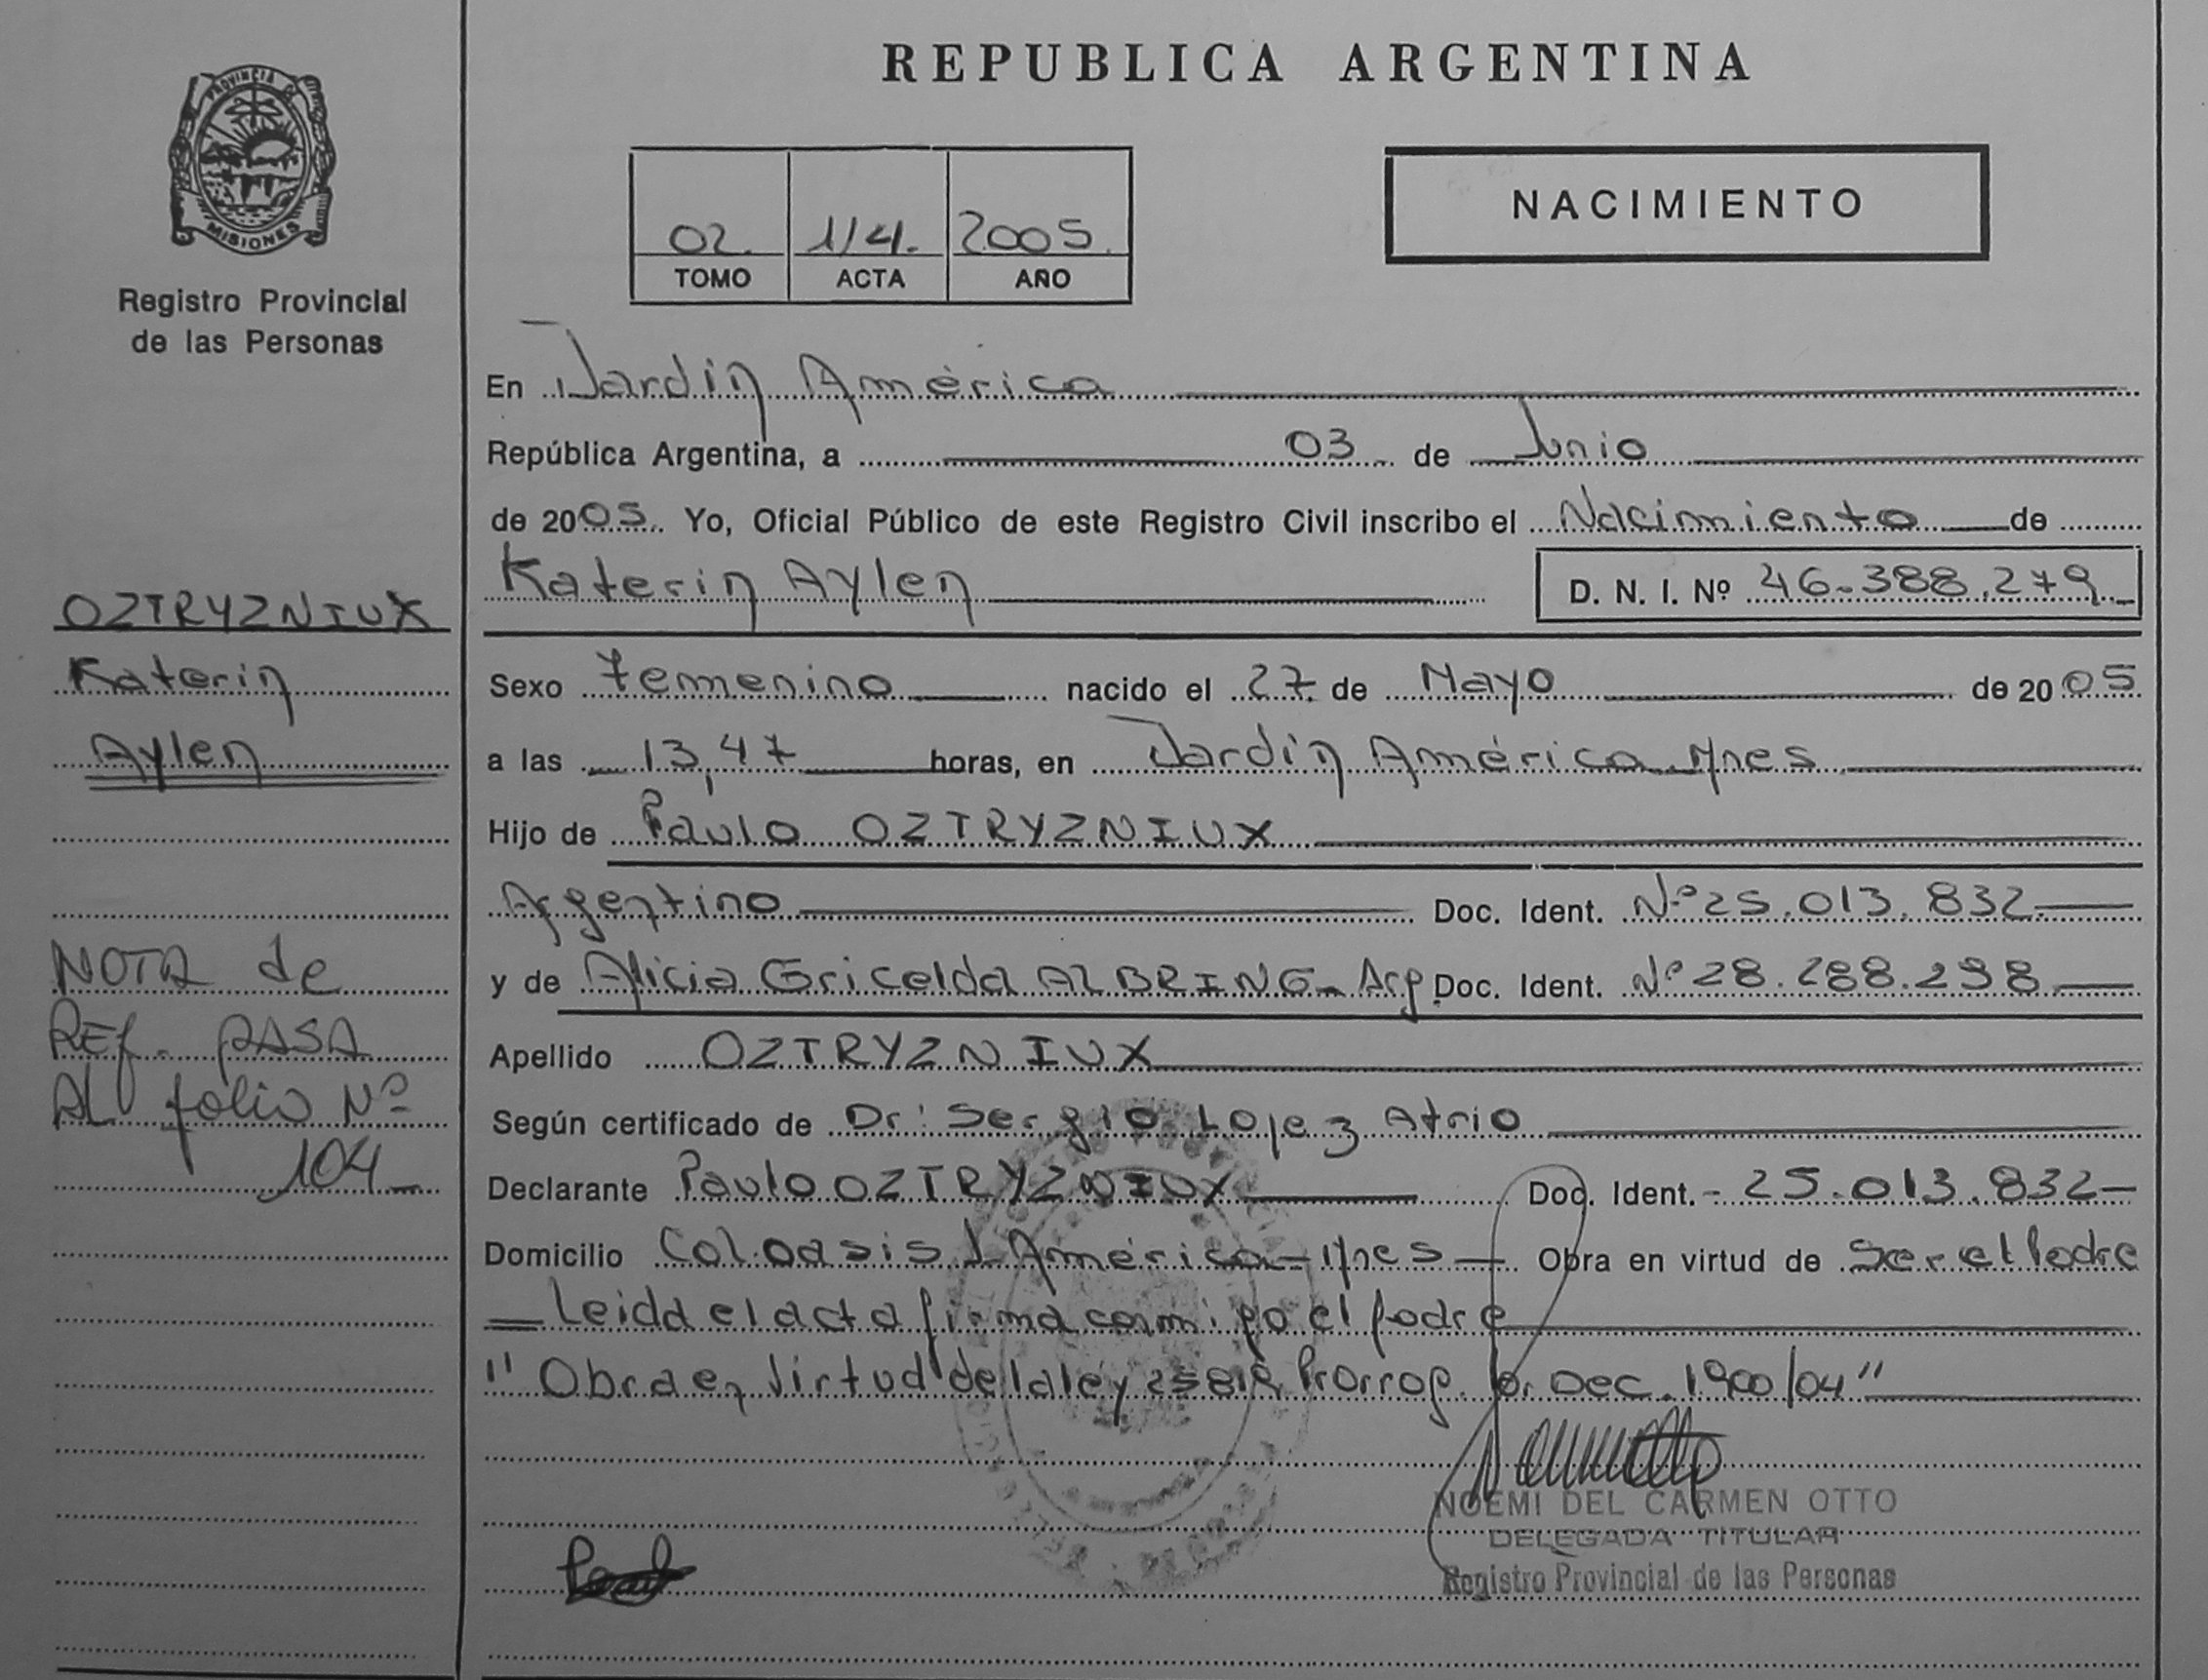 PROVINCIA DE
MISIONES
Registro Provincial
de las Personas
OZTRYZNIUX
Katerin
Aylen
NOTA de
REf. PASA
AL folio Nº
104
REPUBLICA ARGENTINA
NACIMIENTO
02. 114. 2005.
TOMO ACTA AÑO
En Jardín América
República Argentina, a 03 de Junio
de 2005. Yo, Oficial Público de este Registro Civil inscribo el Nacimiento de
Katerin Aylen D. N. I. Nº 46.388.279
Sexo Femenino nacido el 27 de Mayo de 2005
a las 13,47 horas, en Jardín América Mnes
Hijo de Paulo OZTRYZNIUX
Argentino Doc. Ident. Nº 25.013.832
y de Alicia Gricelda ALBRING - Arg Doc. Ident. Nº 28.288.298
Apellido OZTRYZNIUX
Según certificado de Dr: Sergio Lopez Atrio
Declarante Paulo OZTRYZNIUX Doc. Ident. - 25.013.832
Domicilio Col. oasis J. América - Mnes - Obra en virtud de Ser el Padre
Leida el acta firma conmigo el padre
"Obra en virtud de la ley 25819 Prorrog. por Dec. 1900/04"
NOEMI DEL CARMEN OTTO
DELEGADA TITULAR
Registro Provincial de las Personas